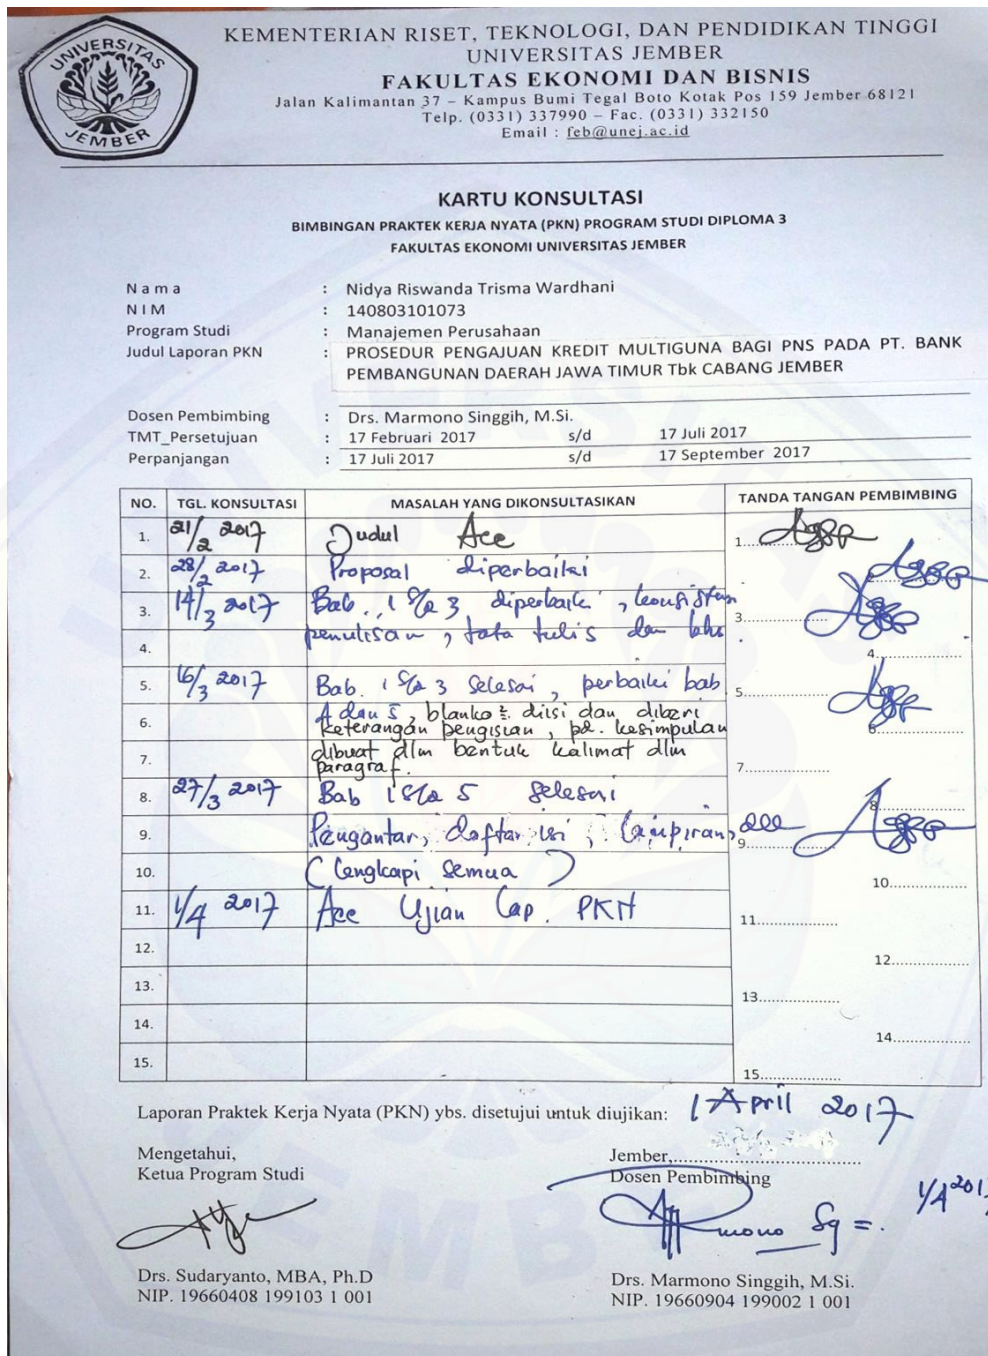 UNIVERSITAS
JEMBER
KEMENTERIAN RISET, TEKNOLOGI, DAN PENDIDIKAN TINGGI
UNIVERSITAS JEMBER
FAKULTAS EKONOMI DAN BISNIS
Jalan Kalimantan 37 – Kampus Bumi Tegal Boto Kotak Pos 159 Jember 68121
Telp. (0331) 337990 – Fac. (0331) 332150
Email : feb@unej.ac.id
KARTU KONSULTASI
BIMBINGAN PRAKTEK KERJA NYATA (PKN) PROGRAM STUDI DIPLOMA 3
FAKULTAS EKONOMI UNIVERSITAS JEMBER
N a m a : Nidya Riswanda Trisma Wardhani
N I M : 140803101073
Program Studi : Manajemen Perusahaan
Judul Laporan PKN : PROSEDUR PENGAJUAN KREDIT MULTIGUNA BAGI PNS PADA PT. BANK
PEMBANGUNAN DAERAH JAWA TIMUR Tbk CABANG JEMBER
Dosen Pembimbing : Drs. Marmono Singgih, M.Si.
TMT_Persetujuan : 17 Februari 2017 s/d 17 Juli 2017
Perpanjangan : 17 Juli 2017 s/d 17 September 2017
NO. TGL. KONSULTASI MASALAH YANG DIKONSULTASIKAN TANDA TANGAN PEMBIMBING
1. 21/2 2017 Judul Acc 1..............
2. 28/2 2017 Proposal diperbaiki
3. 14/3 2017 Bab. 1 s/d 3 diperbaiki, konsistensi 3..............
4. penulisan, tata tulis dan 4..............
5. 16/3 2017 Bab. 1 s/d 3 selesai, perbaiki bab 5..............
6. 4 dan 5, blanko2 diisi dan diberi 6..............
keterangan pengisian, pd. kesimpulan
7. dibuat dlm bentuk kalimat dlm 7..............
paragraf.
8. 27/3 2017 Bab 1 s/d 5 selesai 8..............
9. Pengantar, daftar isi, lampiran, dll 9..............
10. (lengkapi semua) 10..............
11. 1/4 2017 Acc Ujian Lap. PKN 11..............
12. 12..............
13. 13..............
14. 14..............
15. 15..............
Laporan Praktek Kerja Nyata (PKN) ybs. disetujui untuk diujikan: 1 April 2017
Mengetahui,
Ketua Program Studi
Jember,..............
Dosen Pembimbing
1/4 2017
Drs. Sudaryanto, MBA, Ph.D
NIP. 19660408 199103 1 001
Drs. Marmono Singgih, M.Si.
NIP. 19660904 199002 1 001